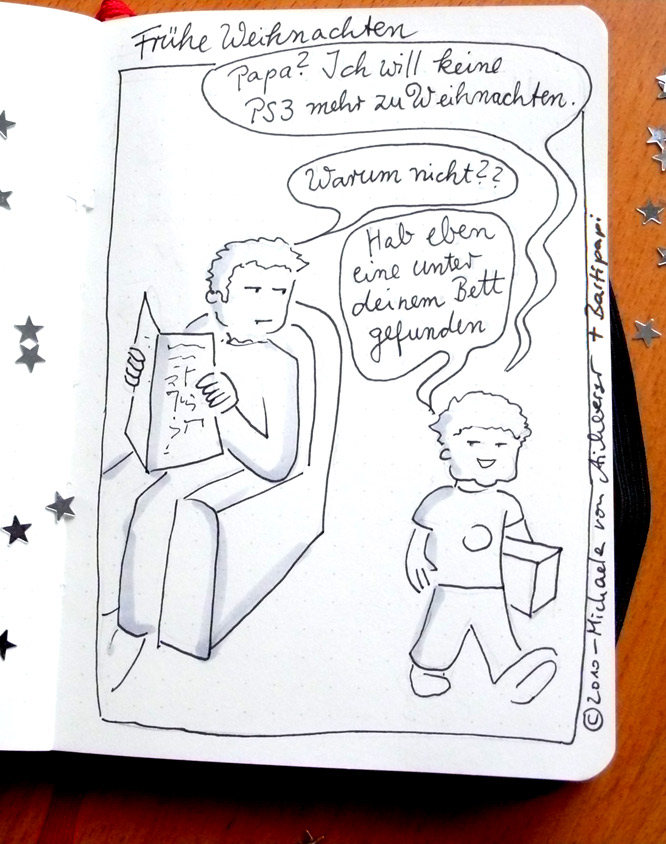 Frühe Weihnachten
Papa? Ich will keine
PS3 mehr zu Weihnachten.
Warum nicht??
Hab eben
eine unter
deinem Bett
gefunden
©2010 – Michaela von Aichberger + Bastipapi